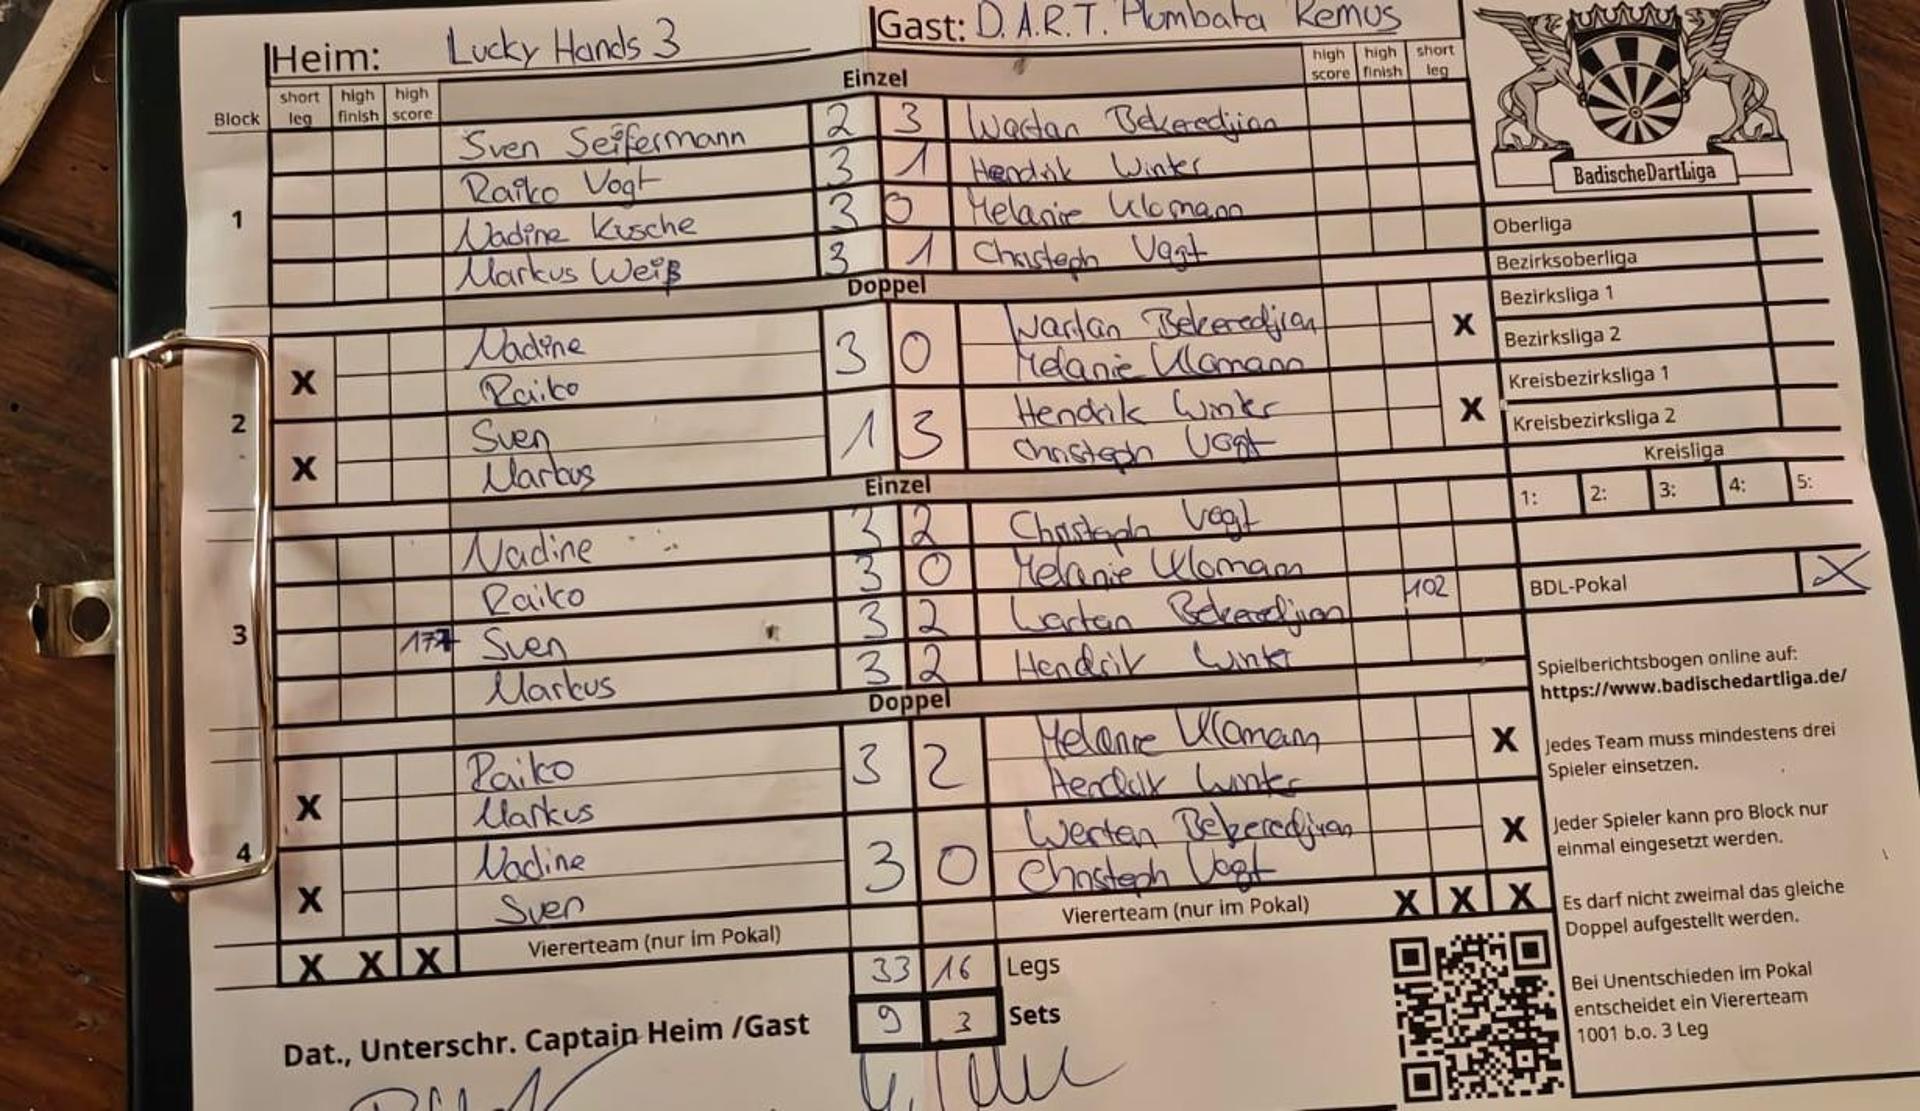 Heim: Lucky Hands 3 Gast: D.A.R.T. Plumbata Remus
Einzel
Block short leg high finish high score high score high finish short leg
1
Sven Seifermann 2 3 Wartan Bekeredjian
Raiko Vogt 3 1 Hendrik Winter
Nadine Kusche 3 0 Melanie Ulomann
Markus Weiß 3 1 Christoph Vogt
Doppel
2
X Nadine 3 0 Wartan Bekeredjian X
Raiko Melanie Ulomann
X Sven 1 3 Hendrik Winter X
Markus Christoph Vogt
Einzel
3
Nadine 3 2 Christoph Vogt
Raiko 3 0 Melanie Ulomann
177 Sven 3 2 Wartan Bekeredjian 102
Markus 3 2 Hendrik Winter
Doppel
4
X Raiko 3 2 Melanie Ulomann X
Markus Hendrik Winter
X Nadine 3 0 Wartan Bekeredjian X
Sven Christoph Vogt
X X X Viererteam (nur im Pokal) Viererteam (nur im Pokal) X X X
33 16 Legs
9 3 Sets
Dat., Unterschr. Captain Heim /Gast
BadischeDartLiga
Oberliga
Bezirksoberliga
Bezirksliga 1
Bezirksliga 2
Kreisbezirksliga 1
Kreisbezirksliga 2
Kreisliga
1: 2: 3: 4: 5:
BDL-Pokal X
Spielberichtsbogen online auf:
https://www.badischedartliga.de/
Jedes Team muss mindestens drei
Spieler einsetzen.
Jeder Spieler kann pro Block nur
einmal eingesetzt werden.
Es darf nicht zweimal das gleiche
Doppel aufgestellt werden.
Bei Unentschieden im Pokal
entscheidet ein Viererteam
1001 b.o. 3 Leg